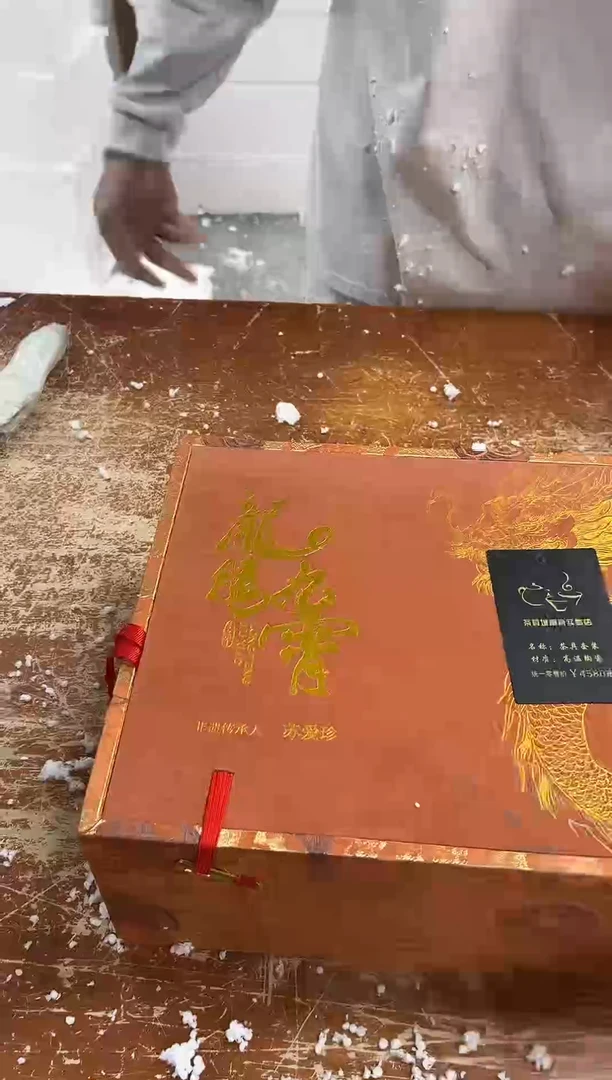 龙腾九霄
非遗传承人 苏爱珍
名称：茶具套装
材质：高温陶瓷
统一零售价 ¥4580